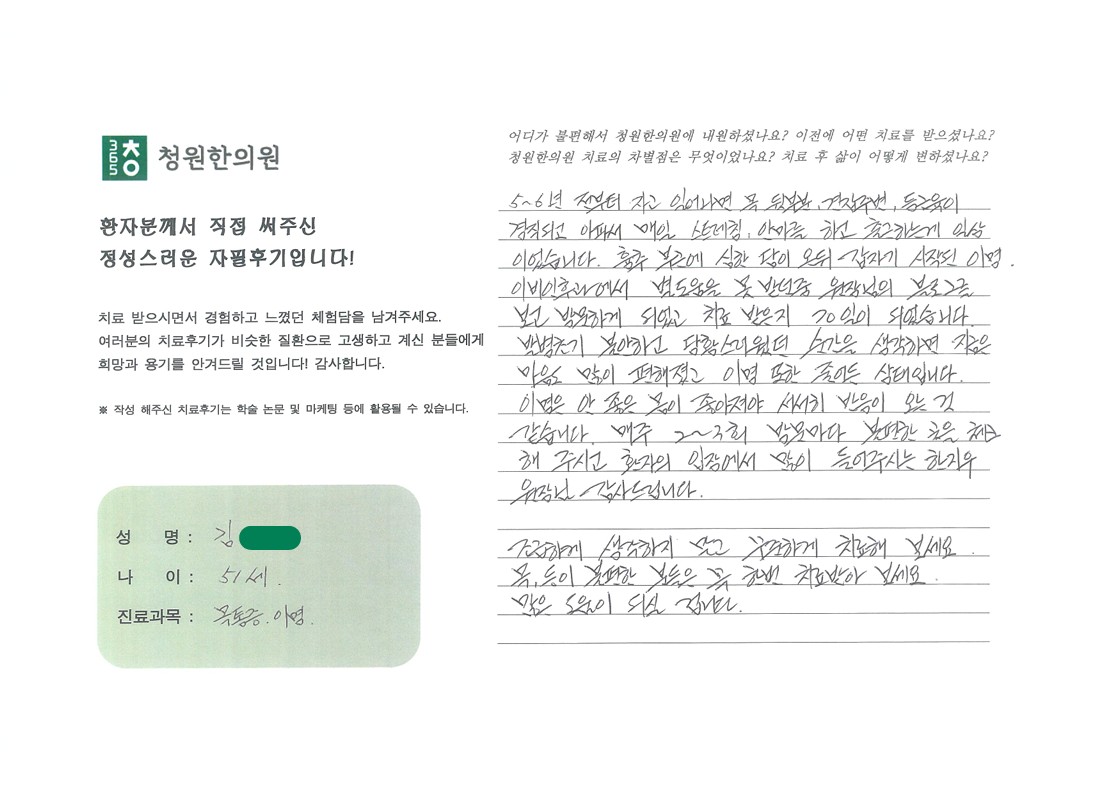 365 청 청원한의원
환자분께서 직접 써주신
정성스러운 자필후기입니다!
치료 받으시면서 경험하고 느꼈던 체험담을 남겨주세요.
여러분의 치료후기가 비슷한 질환으로 고생하고 계신 분들에게
희망과 용기를 안겨드릴 것입니다! 감사합니다.
※ 작성 해주신 치료후기는 학술 논문 및 마케팅 등에 활용될 수 있습니다.
성 명 : 김
나 이 : 51세.
진료과목 : 목통증. 이명.
어디가 불편해서 청원한의원에 내원하셨나요? 이전에 어떤 치료를 받으셨나요?
청원한의원 치료의 차별점은 무엇이었나요? 치료 후 삶이 어떻게 변하셨나요?
5~6년 전부터 자고 일어나면 목 뒷부분, 견갑주변, 등근육이
경직되고 아파서 매일 스트레칭, 안마를 하고 출근하는게 일상
이었습니다. 흉추 부근에 심한 담이 온뒤 갑자기 시작된 이명.
이비인후과에서 별도움을 못 받던중 원장님의 블로그를
보고 방문하게 되었고 치료 받은지 70일이 되었습니다
발병초기 불안하고 당황스러웠던 순간을 생각하면 지금은
마음도 많이 편해졌고 이명 또한 줄어든 상태입니다.
이명은 안 좋은 몸이 좋아져야 서서히 반응이 오는 것
같습니다. 매주 2~3회 방문마다 불편한 곳을 체크
해 주시고 환자의 입장에서 많이 들어주시는 한지우
원장님 감사드립니다.
조급하게 생각하지 말고 꾸준하게 치료해 보세요.
목, 등이 불편한 분들은 꼭 한번 치료받아 보세요.
많은 도움이 되실 겁니다.